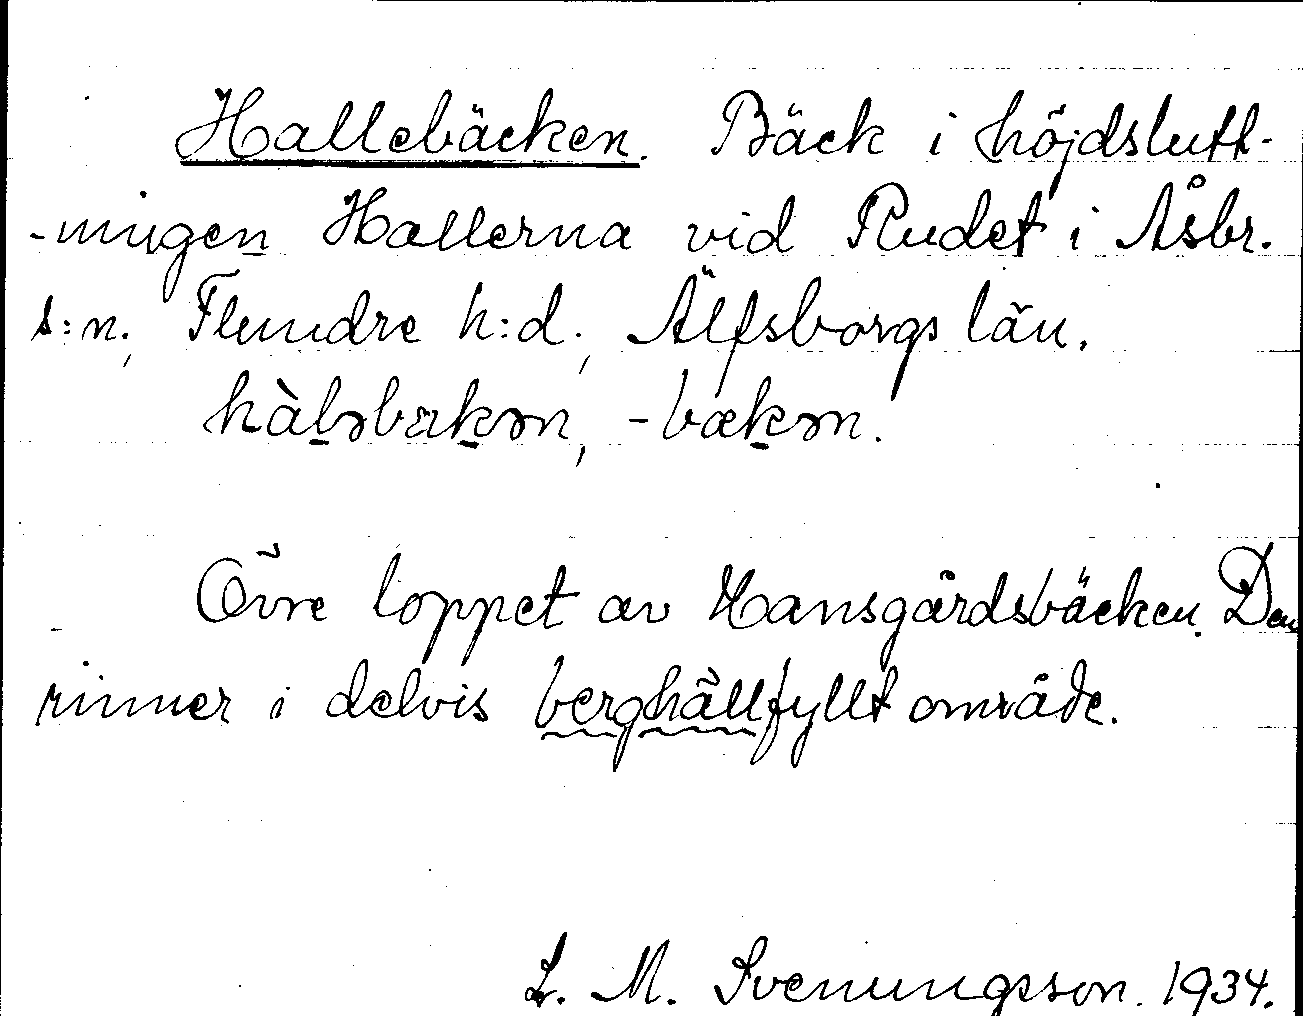 Hallebäcken. Bäck i höjdslutt-
-ningen Hallerna vid Rudet i Åsbr.
s:n., Flundre h:d., Älfsborgs län.
hàl̠əbæk̠ən, -bæk̠ən.
Övre loppet av Hansgårdsbäcken. Den
rinner i delvis berghällfyllt område.
L. M. Svenungsson. 1934.